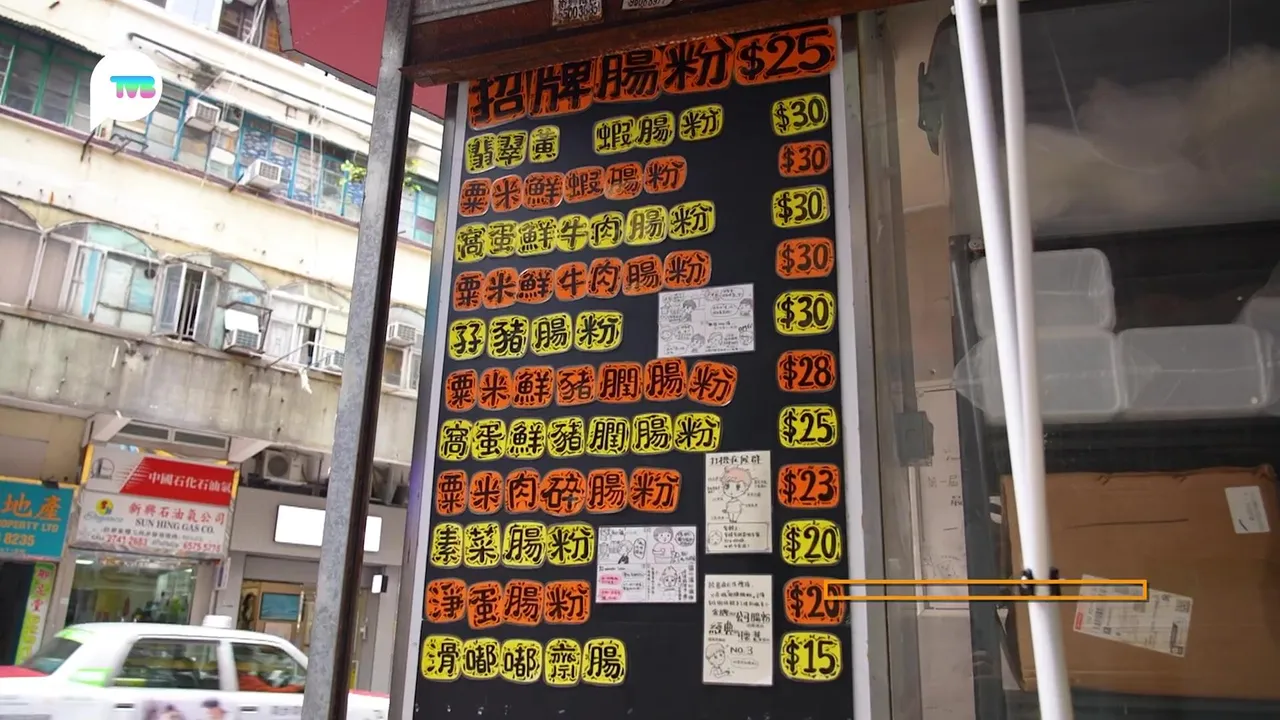 TVB
招牌腸粉 $25
翡翠黃 蝦腸粉 $30
粟米鮮蝦腸粉 $30
窩蛋鮮牛肉腸粉 $30
粟米鮮牛肉腸粉 $30
孖豬腸粉 $30
粟米鮮豬膶腸粉 $28
窩蛋鮮豬膶腸粉 $25
粟米肉碎腸粉 $23
素菜腸粉 $20
淨蛋腸粉 $20
滑嘟嘟齋腸 $15
NO.3
中國石化石油氣
新興石油氣公司
SUN HING GAS CO.
地產
PROPERTY LTD
8235